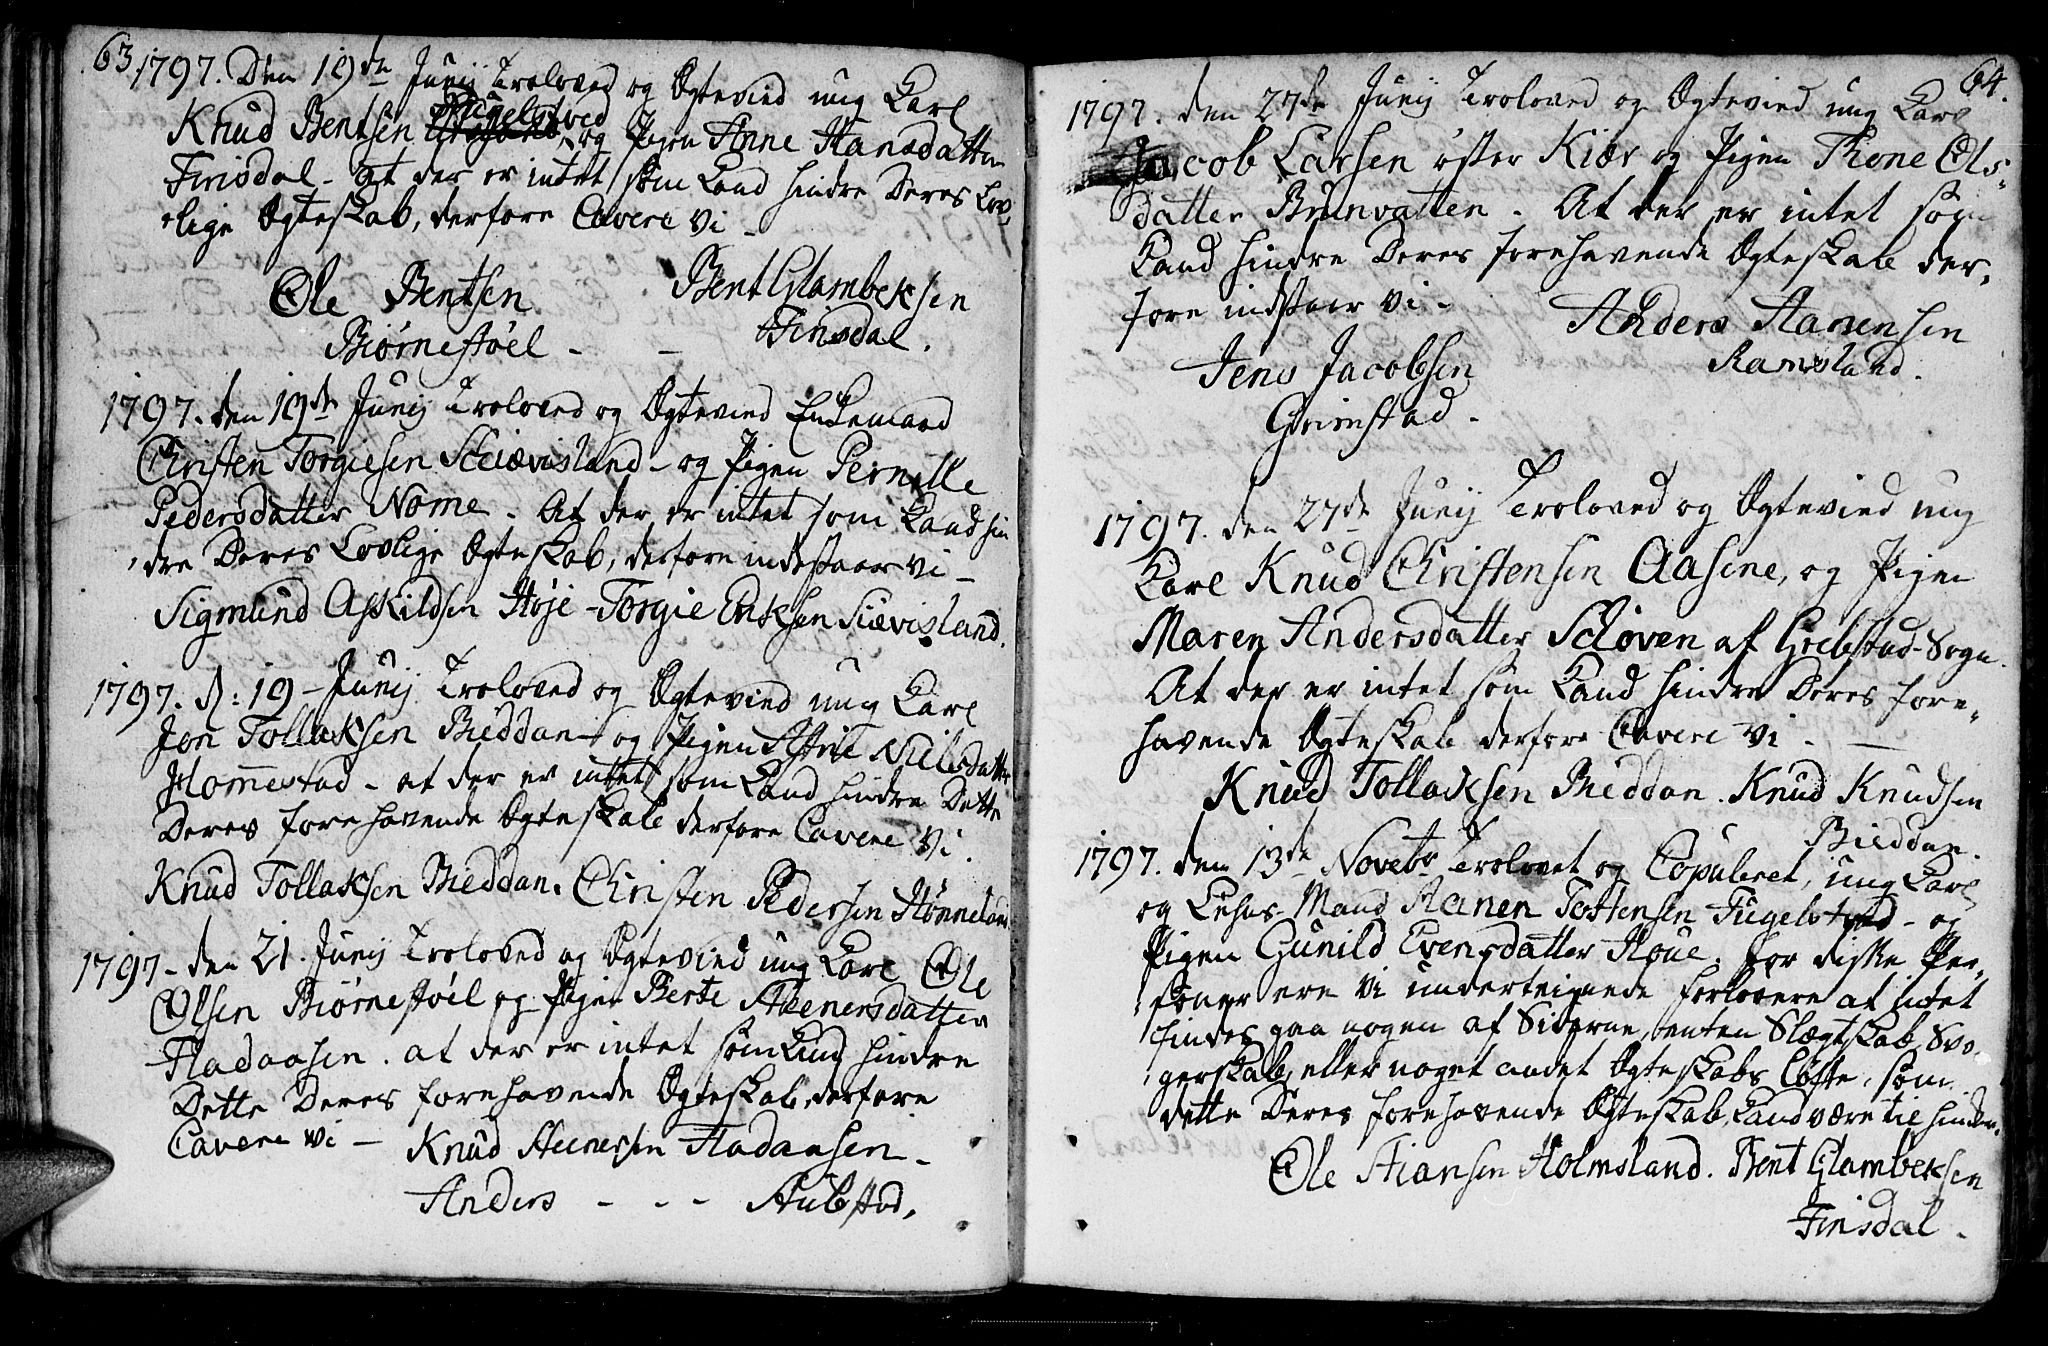 63.
1797. Den 19de Junij Troloved og Ægtevied ung Karl
Knud Bentsen Fugelstved og Pigen Anne Hansdatter
Finsdal - At der er intet som kand hindre Deres Lov-
lige Ægteskab, derfore Cavere vi -
Ole Bentsen Bent Glambeksen
Biørnestøel - - Finsdal.
1797. den 19de Junij Troloved og Ægtevied Enkemand
Christen Torgiesen Sciævisland - og Pigen Pernille
Pedersdatter Nome - At der er intet som kand hin
dre Deres Lovlige Ægteskab, derfore indestaar vi -
Sigmund Askildsen Høje - Torgie Eriksen Siævisland.
1797. d: 19 - Junij Troloved og Ægtevied ung Karl
Jon Tollaksen Bieddan - og Pigen Siri Nielsdatter
Homestad - at der er intet som kand hindre Dette
Deres forehavende Ægteskab derfore Cavere vi.
Knud Tollaksen Bieddan. Christen Pedersen Hønneland
1797 - den 21. Junij Troloved og Ægtevied ung Karl Ole
Olsen Biørnestøel og Pigen Berte Steenersdatter
Fladaasen. at der er intet som kand hindre
Dette Deres forehavende Ægteskab, derfore
Cavere vi - Knud Steenersen Fladaasen -
Anders - - - Stubstad.
64.
1797. den 27de Junij Troloved og Ægtevied ung Karl
Jacob Larsen øster Kiær og Pigen Thone Ols-
datter Brunvatten - At der er intet som
kand hindre Deres forehavende Ægteskab der-
fore indstaar vi - Anders Aanensen
Jens Jacobsen Ramsland.
Grimstad -
1797. den 27de Junij Troloved og Ægtevied ung
Karl Knud Christensen Aasene, og Pigen
Maren Andersdatter Schoven af Grebstad-Sogn.
At der er intet som kand hindre Deres fore-
havende Ægteskab derfore Cavere vi -
Knud Tollaksen Bieddan. Knud Knudsen
Bieddan.
1797. den 13de Novebr Trolovet og Copuleret, ung Karl
og Lehns-Mand Aanen Tostensen Fugelstved - og
Pigen Gunild Evensdatter Houe. for diske Per-
soner ere vi undertegnede forlovere at intet
findes paa nogen af Siderne, enten Slægtskab, Svo-
gerskab, eller noget andet Ægteskabs Løfte, som
dette Deres forehavende Ægteskab, kand være til hinder.
Ole Stiansen Holmsland. Bent Glambeksen
Finsdal -